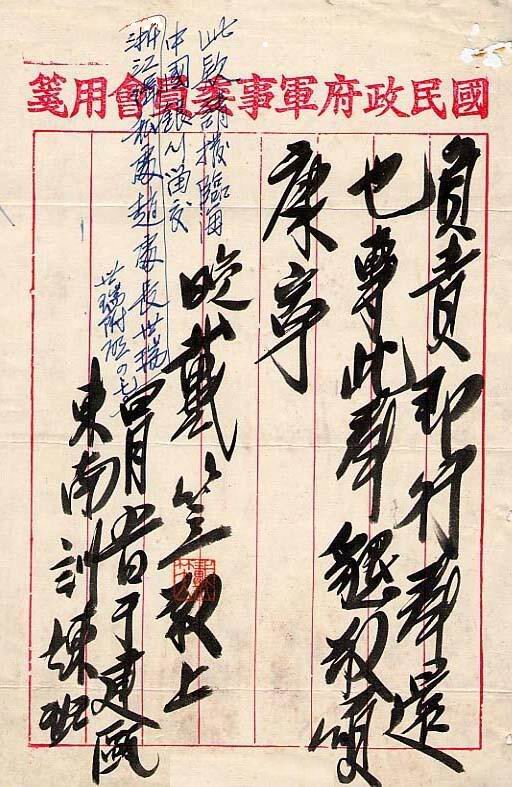 國民政府軍事委員會用箋
負責即行奉還
也專此奉懇敬頌
康寧
晚戴笠敬上
四月 日于建甌
東南訓練班
此款請撥臨海
中國銀行留交
浙江緝私處趙處長世瑞
世瑞附